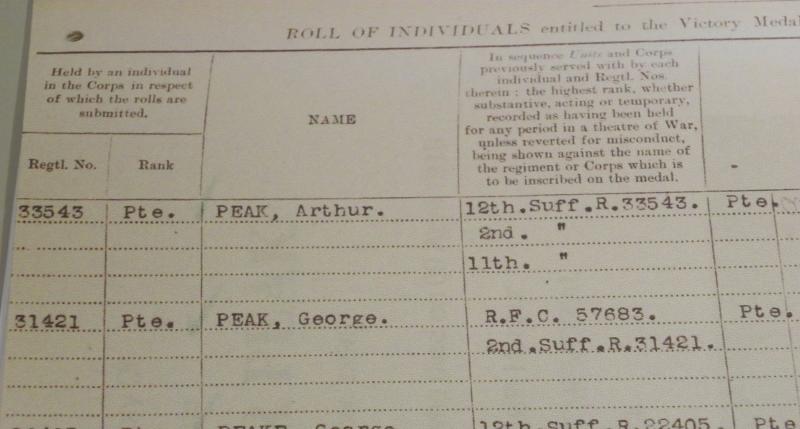 ROLL OF INDIVIDUALS entitled to the Victory Medal
Held by an individual
in the Corps in respect
of which the rolls are
submitted.
Regtl. No.
Rank
NAME
In sequence Units and Corps
previously served with by each
individual and Regtl. Nos.
therein : the highest rank, whether
substantive, acting or temporary,
recorded as having been held
for any period in a theatre of War,
unless reverted for misconduct,
being shown against the name of
the regiment or Corps which is
to be inscribed on the medal.
33543 Pte. PEAK, Arthur. 12th.Suff.R.33543. Pte.
2nd. "
11th. "
31421 Pte. PEAK, George. R.F.C. 57683. Pte.
2nd.Suff.R.31421.
PEAKE, George 12th.Suff.R.22405. Pte